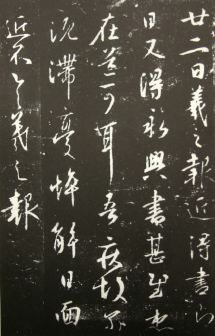 廿二日羲之報近得書即
日又得永興書甚慰想
在道可耳吾疾故尔
沉滯憂悴解日面
近不具羲之報